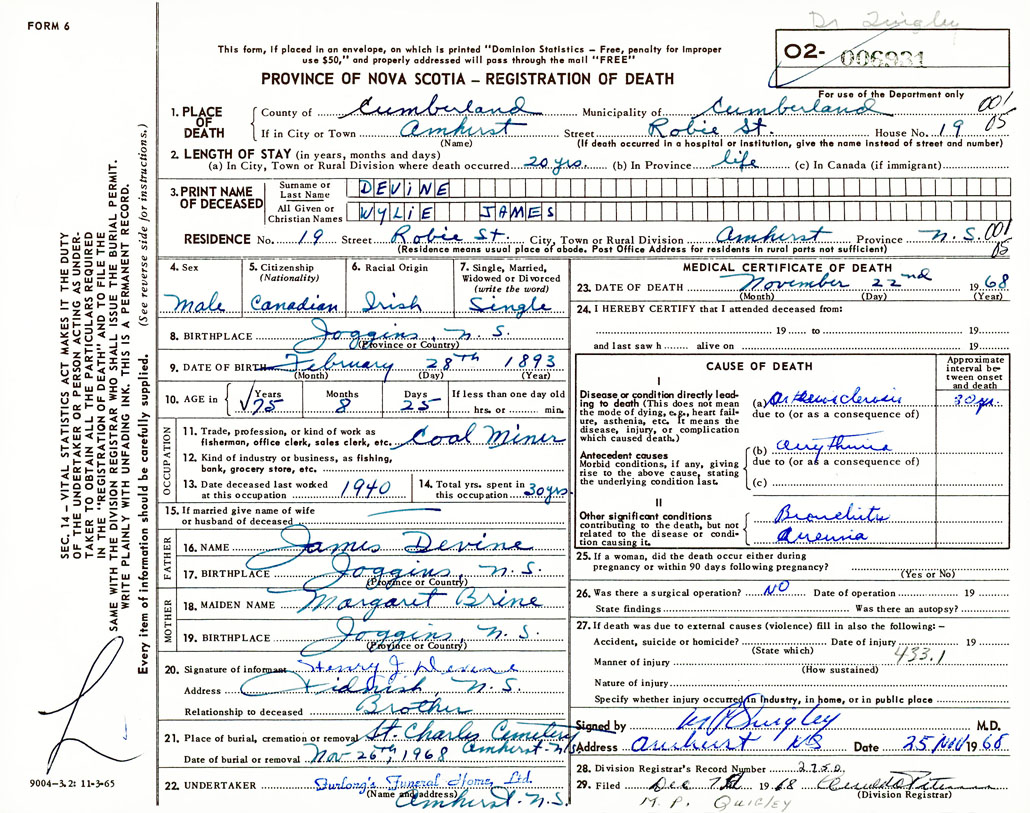 FORM 6
Dr Quigley
This form, if placed in an envelope, on which is printed "Dominion Statistics – Free, penalty for improper
use $50," and properly addressed will pass through the mail "FREE"
O2- 006931
PROVINCE OF NOVA SCOTIA – REGISTRATION OF DEATH
For use of the Department only
1. PLACE OF DEATH County of Cumberland Municipality of Cumberland 001/05
If in City or Town Amherst Street Robie St. House No. 19
(Name) (If death occurred in a hospital or institution, give the name instead of street and number)
2. LENGTH OF STAY (in years, months and days)
(a) In City, Town or Rural Division where death occurred 20 yrs. (b) In Province life (c) In Canada (if immigrant)
3. PRINT NAME OF DECEASED Surname or Last Name DEVINE
All Given or Christian Names WYLIE JAMES
RESIDENCE No. 19 Street Robie St. City, Town or Rural Division Amherst Province N.S. 001/05
(Residence means usual place of abode. Post Office Address for residents in rural parts not sufficient)
4. Sex
Male
5. Citizenship (Nationality)
Canadian
6. Racial Origin
Irish
7. Single, Married, Widowed or Divorced (write the word)
Single
8. BIRTHPLACE Joggins, N.S.
(Province or Country)
9. DATE OF BIRTH February 28th 1893
(Month) (Day) (Year)
10. AGE in Years Months Days If less than one day old
75 8 25 hrs. or min.
OCCUPATION
11. Trade, profession, or kind of work as fisherman, office clerk, sales clerk, etc. Coal Miner
12. Kind of industry or business, as fishing, bank, grocery store, etc.
13. Date deceased last worked at this occupation 1940
14. Total yrs. spent in this occupation 30 yrs.
15. If married give name of wife or husband of deceased
FATHER
16. NAME James Devine
17. BIRTHPLACE Joggins, N.S.
(Province or Country)
MOTHER
18. MAIDEN NAME Margaret Brine
19. BIRTHPLACE Joggins, N.S.
(Province or Country)
20. Signature of informant Henry J. Devine
Address Tidnish, N.S.
Relationship to deceased Brother
21. Place of burial, cremation or removal St. Charles Cemetery
Amherst-N.S.
Date of burial or removal Nov 25th, 1968
22. UNDERTAKER Furlong's Funeral Home, Ltd.
(Name and address) Amherst, N.S.
MEDICAL CERTIFICATE OF DEATH
23. DATE OF DEATH November 22nd 1968
(Month) (Day) (Year)
24. I HEREBY CERTIFY that I attended deceased from:
19 to 19
and last saw h alive on 19
CAUSE OF DEATH
Approximate interval between onset and death
I
Disease or condition directly leading to death (This does not mean the mode of dying, e.g., heart failure, asthenia, etc. It means the disease, injury, or complication which caused death.)
(a) Arteriosclerosis 30 yr.
due to (or as a consequence of)
Antecedent causes
Morbid conditions, if any, giving rise to the above cause, stating the underlying condition last.
(b) arrythmia
due to (or as a consequence of)
(c)
II
Other significant conditions contributing to the death, but not related to the disease or condition causing it.
Bronchitis
25. If a woman, did the death occur either during pregnancy or within 90 days following pregnancy?
(Yes or No)
26. Was there a surgical operation? NO Date of operation 19
State findings Was there an autopsy?
27. If death was due to external causes (violence) fill in also the following: –
Accident, suicide or homicide? Date of injury 19
(State which) 433.1
Manner of injury
(How sustained)
Nature of injury
Specify whether injury occurred in industry, in home, or in public place
Signed by M P Quigley M.D.
Address Amherst NS Date 25 Nov 1968
28. Division Registrar's Record Number 2750
29. Filed Dec 1968
(Division Registrar)
M. P. QUIGLEY
SEC. 14 – VITAL STATISTICS ACT MAKES IT THE DUTY
OF THE UNDERTAKER OR PERSON ACTING AS UNDER-
TAKER TO OBTAIN ALL THE PARTICULARS REQUIRED
IN THE "REGISTRATION OF DEATH" AND TO FILE THE
SAME WITH THE DIVISION REGISTRAR WHO SHALL ISSUE THE BURIAL PERMIT.
WRITE PLAINLY WITH UNFADING INK. THIS IS A PERMANENT RECORD.
Every item of information should be carefully supplied. (See reverse side for instructions.)
9004–3.2: 11-3-65